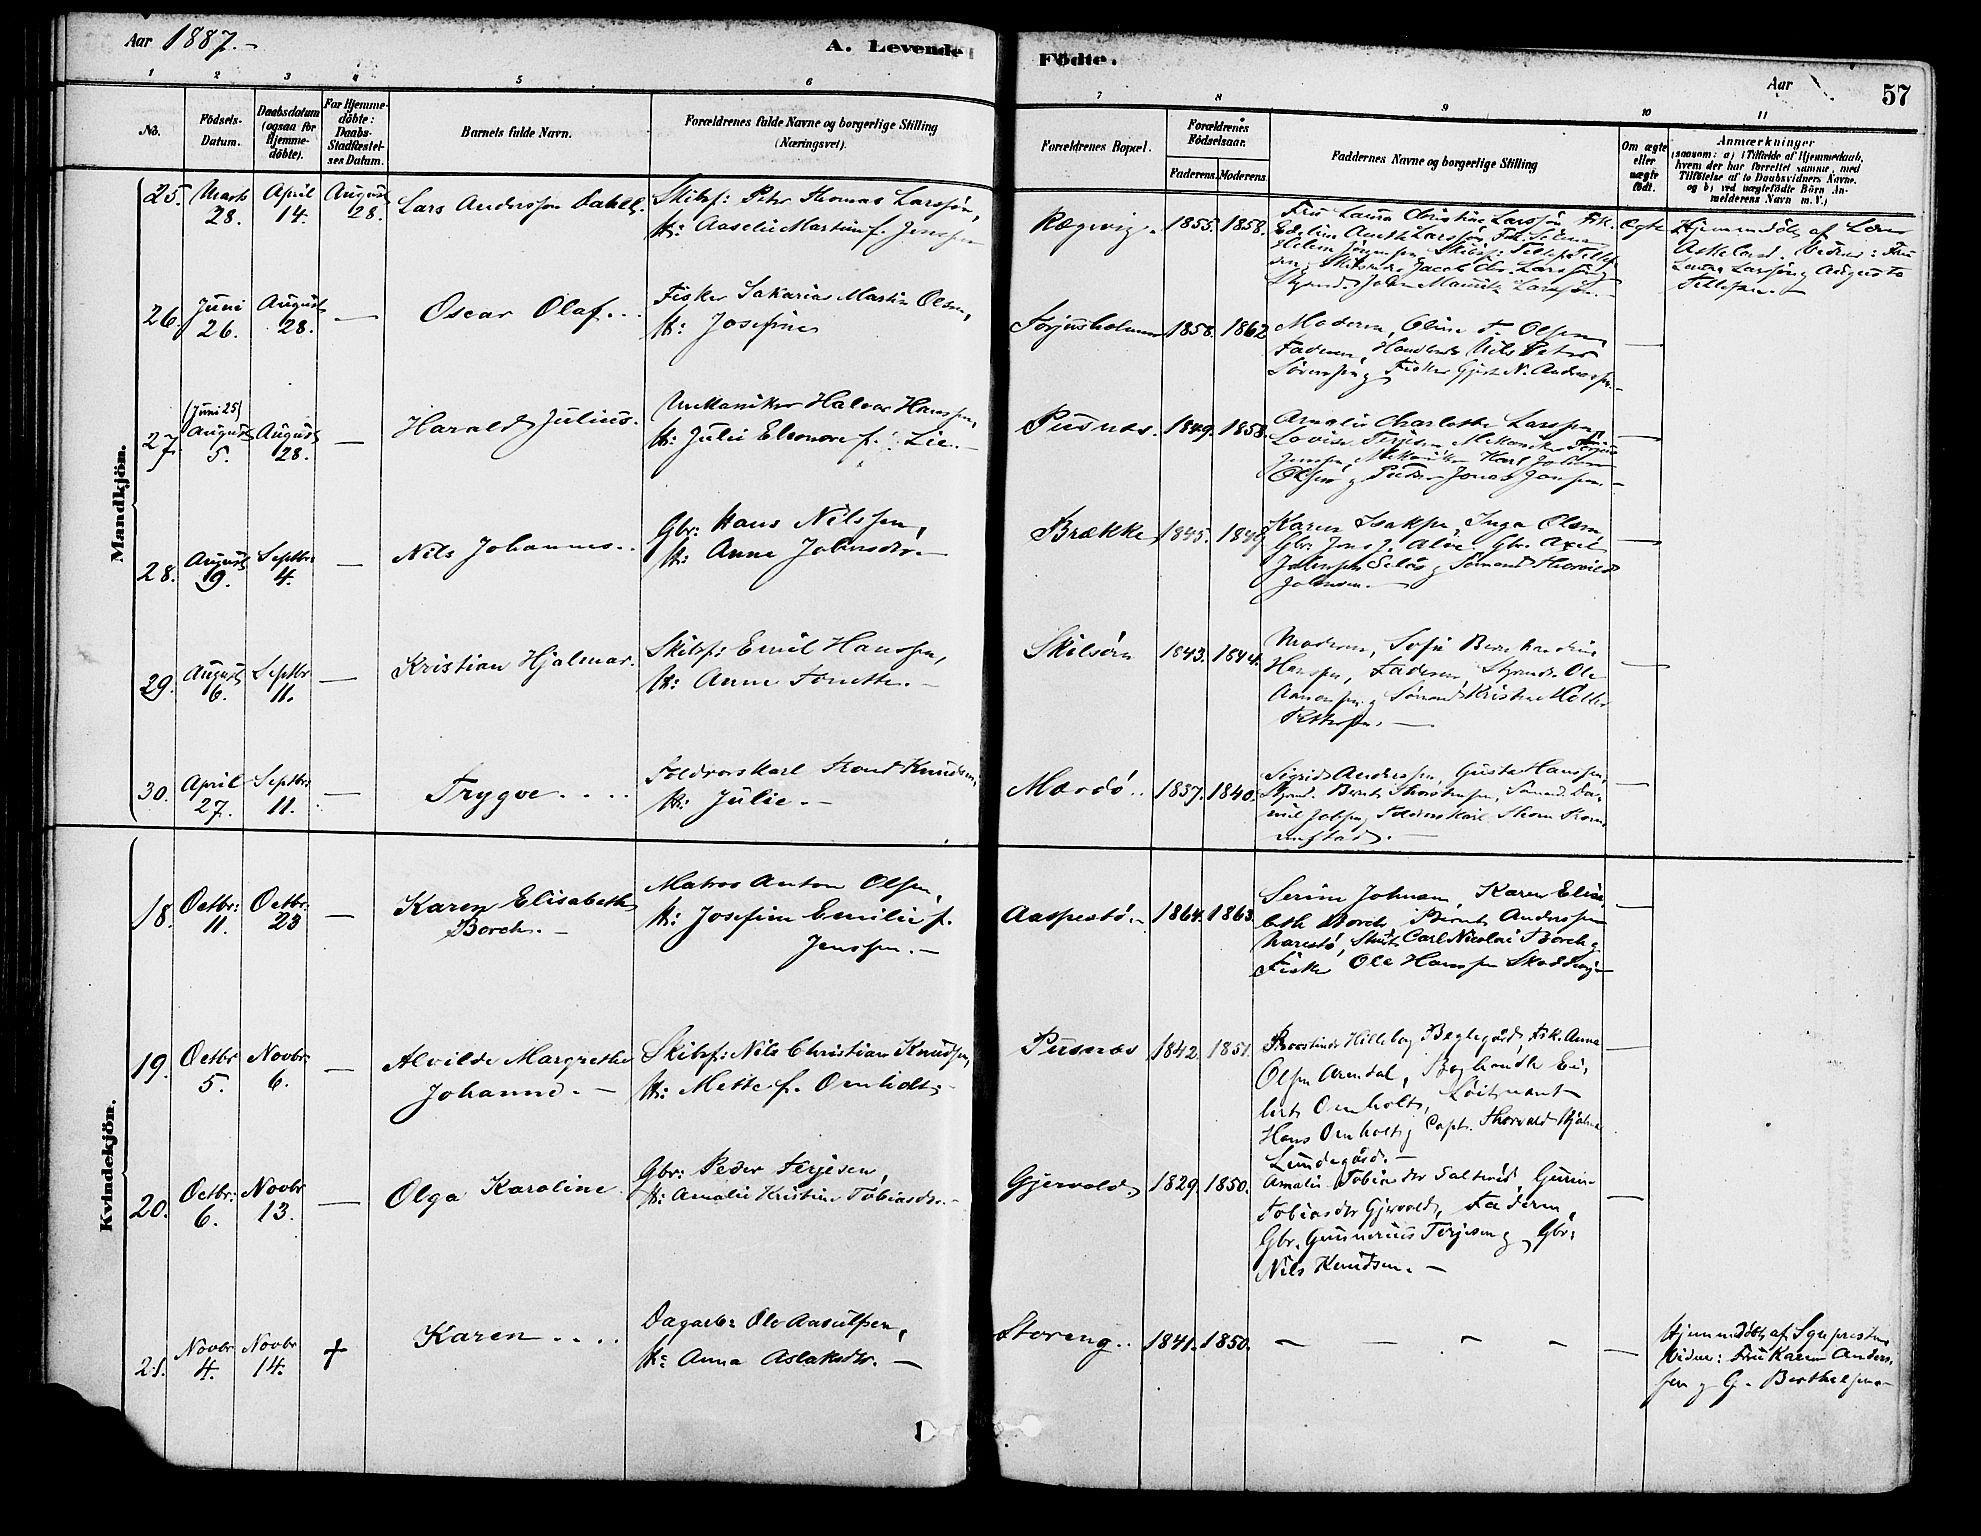 Aar 1887.-
A. Levende Födte.
Aar
57
1 2 3 4 5 6 7 8 9 10 11
No.
Födsels-
Datum.
Daabsdatum
(ogsaa for
Hjemme-
döbte).
For Hjemme-
döbte:
Daabs-
Stadfæstel-
ses Datum.
Barnets fulde Navn.
Forældrenes fulde Navne og borgerlige Stilling
(Næringsvei).
Forældrenes Bopæl.
Forældrenes
Födselsaar.
Faderens. Moderens.
Faddernes Navne og borgerlige Stilling
Om ægte
eller
uægte
födt.
Anmærkninger
(saasom: a) i Tilfælde af Hjemmedaab,
hvem der har forrettet samme, med
Tilföielse af to Daabsvidners Navne,
og b) ved uægtefödte Börn An-
melderens Navn m. V.)
Mandkjön.
25.
Marts
28.
April
14.
August
28.
Lars Anderssen Dahll.
Skibsf: Peter Thomas Larssön,
H: Aaselie Martine f. Jenssen
Rægevig.
1855. 1858.
Fru Laura Christine Larssön
Jacob Chr. Larssön
Larssön.-
Ægte
Hjemmedöbt af Lærer
Askeland. Vidner: Fru
Laura Larssön og Augusta
Tellefsen.-
26.
Juni
26.
August
28.
—
Oscar Olaf..
Fisker Sakarias Martin Olsen,
H: Josefine
Torjusholmen
1858. 1862
Moderen, Oline Olsen,
Faderen, Nils Peter
Sörensen og Fisker N. Anderssen-
—
27.
(Juni 25)
August
5.
August
28.
—
Harald Julius.
Mekaniker Halvor Hanssen,
H: Julie Eleonore f. Lie.-
Pusnes.
1849. 1858.
Amalie Charlotte Larssen,
Lovise Terjesen, Mekaniker
Jenssen, Mekaniker Karl Johan
Olsen og Jonas Jonssen-
—
28.
August
9.
Septbr:
4.
—
Nils Johannes..
Gbr: Hans Nilssen,
H: Anne Johnsdtr.-
Brække
1845.
Karen Isaksen, Inga Olsen
Gbr: Jens J. Alve, Gbr. Axel
og Sömand Thorvald
Johnsen.-
—
29.
August
6.
Septbr
11.
—
Kristian Hjalmar.
Skibsf: Emil Hanssen,
H: Anne Tonette.-
Skilsöen
1843. 1844.
Moderen, Sofie Bernhardine
Hanssen, Faderen, Styrmd. Ole
og Sömand Kristian Möller
Pettersen.-
—
30.
April
27.
Septbr:
11.
—
Trygve....
Toldrorskarl Trond Knudsen,
H: Julie.-
Mærdö..
1837. 1840.
Sigrid Anderssen, Gusta Hanssen,
Styrmd. Bernt Sömand Da-
niel Jobsen, Toldrorskarl Thom
—
Kvindekjön.
18.
Octbr:
11.
Octbr.
23
—
Karen Elisabeth
Borch.-
Matros Anton Olsen,
H: Josefine Emilie f.
Jenssen.-
Aaspestö.-
1864. 1863.
Serine Johnsen, Karen Elisa-
beth Borch, Bernt Anderssen
Narestö, Carl Nicolai Borch og
Fisker Ole Hanssen
—
19.
Octbr
5.
Novbr
6.
—
Alvilde Margrethe
Johanne.-
Skibsf: Nils Christian Knudsen,
H: Mette f. Omholdt.-
Pusnes
1842. 1851.
Hilleborg Beglegård, Frk. Anna
Olsen Arendal, Boghandler Ei-
lert Omholt, Löitnant
Hans Omholt og Capt. Thorvald Hjalmar
Lundegård.-
—
20.
Octbr:
6.
Novbr
13.
—
Olga Karoline
Gbr: Peder Terjesen,
H: Amalie Kristine Tobiasdtr.-
Gjervold.
1829. 1850.
Amalie Tobiasdtr Salteröd, Gurine
Tobiasdtr Gjervold, Faderen,
Gbr. Gunnerius Terjesen og Gbr:
Nils Knudsen.-
—
21.
Novbr
4.
Novbr
14.
†
Karen....
Dagarb: Ole Aasulfsen,
H: Anna Aslaksdtr.-
Storeng..
1841. 1850.
— — — —
—
Hjemmedöbt af Sognepresten
Vidner: Fru Karen Anders-
sen og G. Berthelsen-